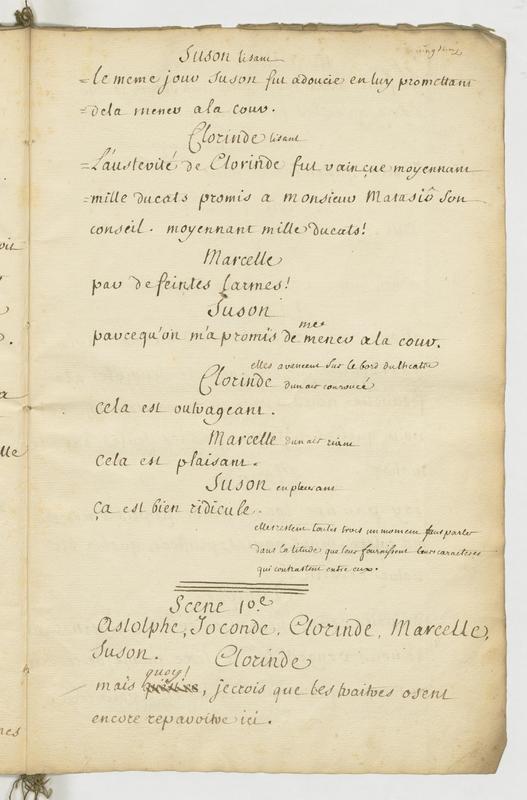 Suson lisant
=le meme jour Suson fut adoucie en luy promettant
=dela mener ala cour.
Clorinde lisant
=L'austerité de Clorinde fut vainçue moyennant
=mille ducats promis a monsieur Matasiô son
conseil. moyennant mille ducats!
Marcelle
par de feintes larmes!
Suson
parcequ'on m'a promis de me mener ala cour.
elles avencent sur le bord du theatre
Clorinde d'un air courroucé
cela est outrageant.
Marcelle d'un air riant
cela est plaisant.
Suson en pleurant
ça est bien ridicule.
elles restent toutes trois un moment sans parler
dans latitude que leur fournissent leurs caracteres
qui contrastent entre eux.
Scene 10.e
Astolphe, Joconde, Clorinde, Marcelle,
Suson. Clorinde
mais quoy!, jecrois que les traitres osent
encore reparoitre ici.